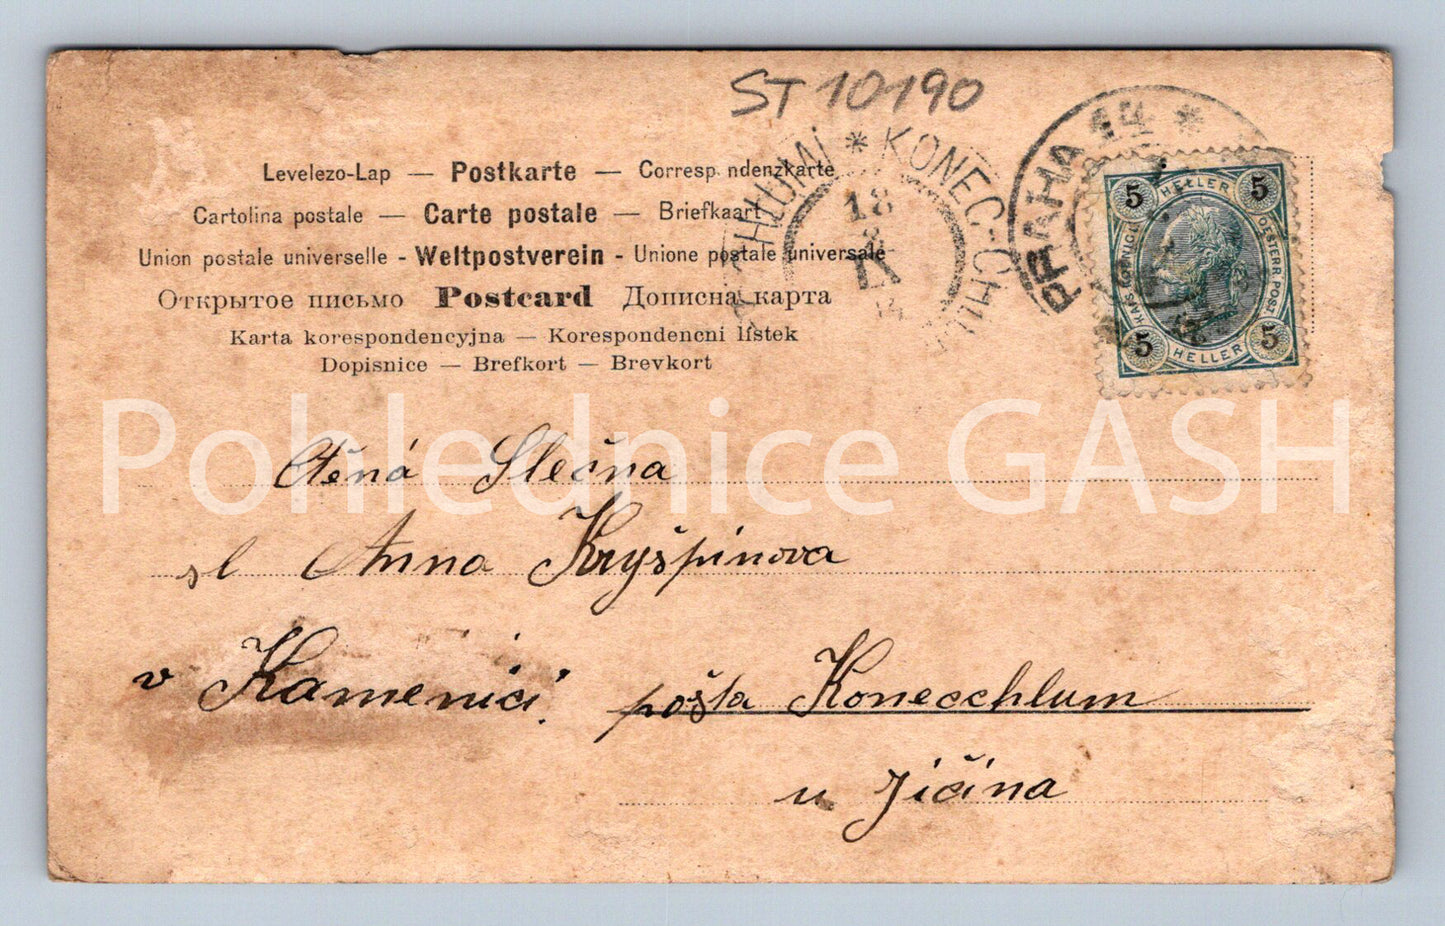 ST 10190
Levelezo-Lap — Postkarte — Corresp ndenzkarte
Cartolina postale — Carte postale — Briefkaart
Union postale universelle - Weltpostverein - Unione postale universale
Открытое письмо Postcard Дописна карта
Karta korespondencyjna — Korespondencni lístek
Dopisnice — Brefkort — Brevkort
CHLUMÍ * KONEC-CHLUMÍ
18
IX
PRAHA 14 *
5 HELLER 5
KAIS. KOENIGL. OESTERR. POST
5 HELLER 5
Pohlednice GASH
Ctěná Slečna
sl Anna Kryšpinova
v Kamenici. pošta Konecchlum
u Jičína